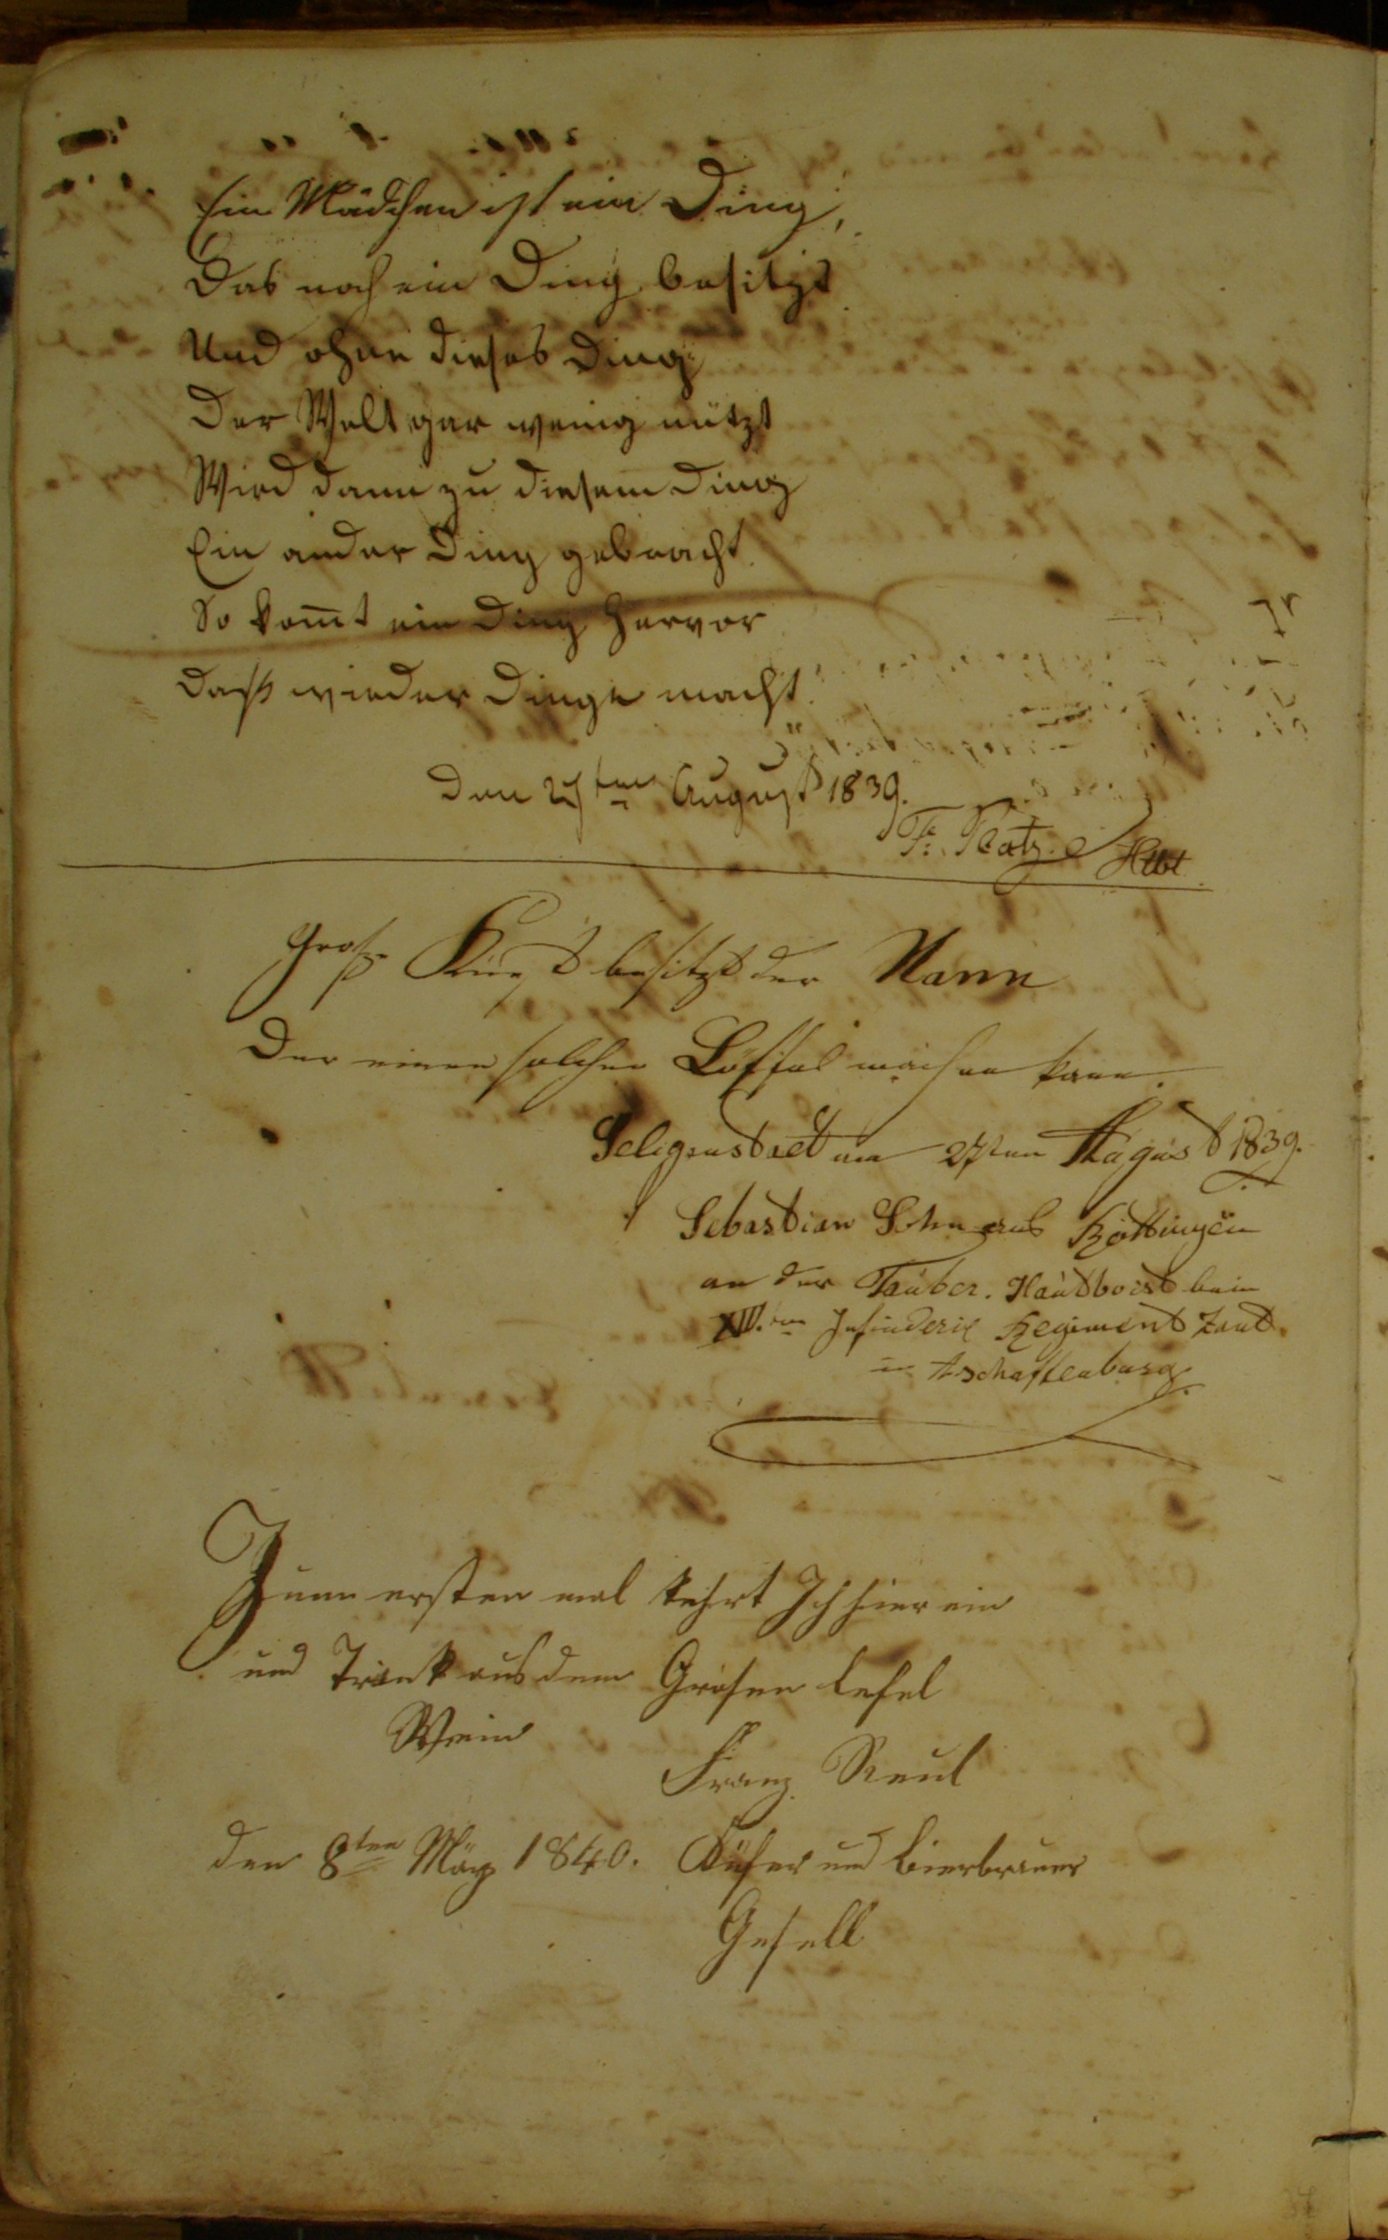 Ein Mädchen ist ein Ding,
Das noch ein Ding besitzt
Und ohne dieses Ding
Der Welt gar wenig nützt
Wird dann zu diesem Ding
Ein ander Ding gebracht
So kom̅t ein Ding hervor
Daß wieder Dinge macht.
Den 27ten August 1839.
Fr.
Groß Kunst besitzt der Mann
Der einen solchen Löffel machen kann.
Seligenstadt am 27ten August 1839.
Sebastian Sohn aus Röttingen
an der Tauber. Hautboist beim
Infanderie Regiment Zant
in Aschaffenburg.
Zum ersten mal kehrt Ich hier ein
und Trink aus dem Grosen Lefel
Wein
Franz Reul
den 8ten März 1840. Küfer und Bierbrauer
Gesell